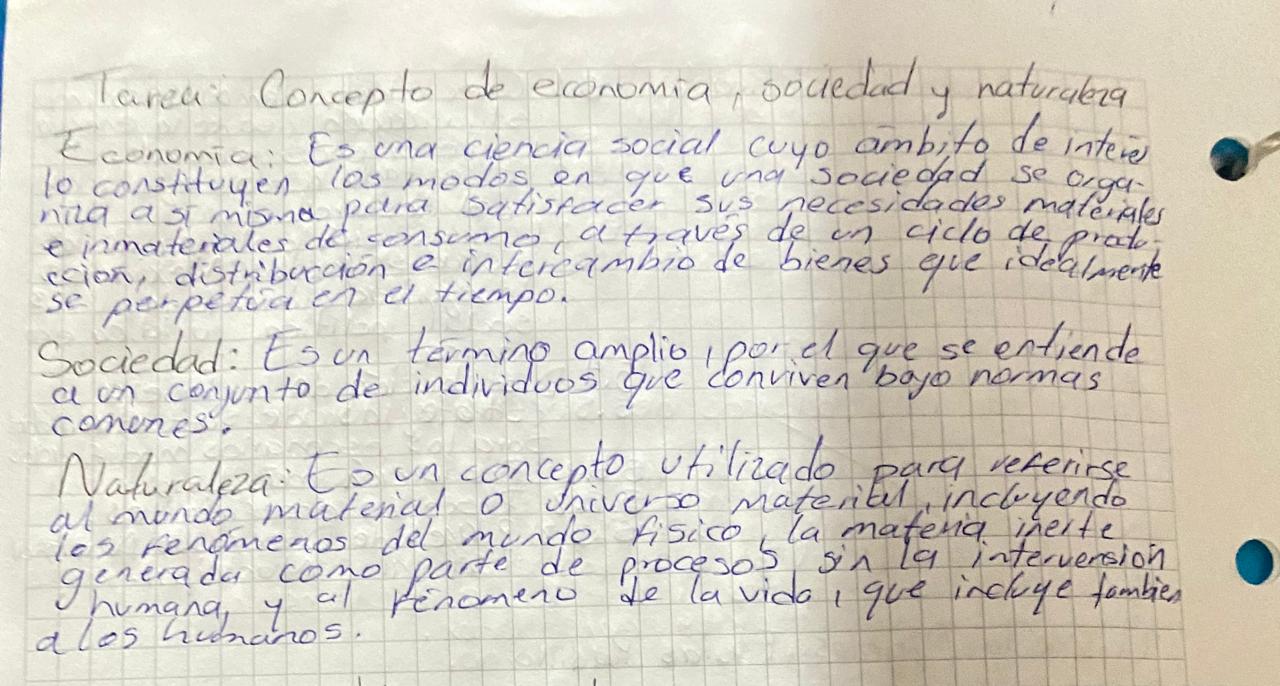 Tarea: Concepto de economía, sociedad y naturaleza
Economía: Es una ciencia social cuyo ámbito de interés
lo constituyen los modos en que una sociedad se orga-
niza a sí misma para satisfacer sus necesidades materiales
e inmateriales de consumo, a través de un ciclo de produ-
cción, distribución e intercambio de bienes que idealmente
se perpetúa en el tiempo.
Sociedad: Es un término amplio, por el que se entiende
a un conjunto de individuos que conviven bajo normas
comunes.
Naturaleza: Es un concepto utilizado para referirse
al mundo material o universo material, incluyendo
los fenómenos del mundo físico, la materia inerte
generada como parte de procesos sin la interversión
humana, y al fenómeno de la vida, que incluye tambien
a los humanos.